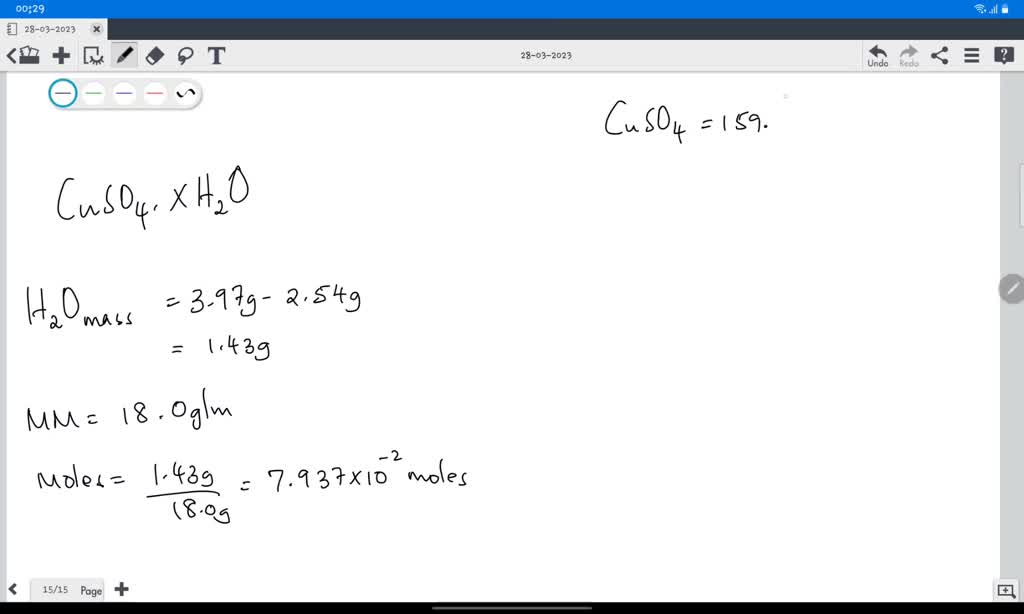 00:29
28-03-2023
T
28-03-2023
Undo
Redo
CuSO₄ = 159.
CuSO₄ . x H₂O
H₂O mass = 3.97g - 2.54g
= 1.43g
MM = 18.0g/m
Moles = 1.43g / 18.0g = 7.937 x 10⁻² moles
15/15 Page